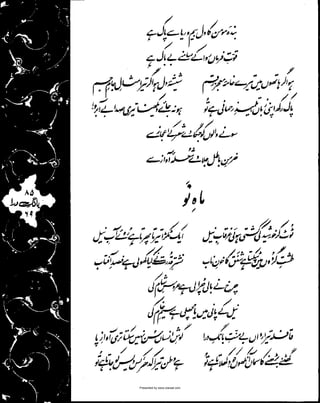 بندۂ مومن کا دل بیم و ریا سے پاک ہے
قوتِ فرماں روا کے سامنے بے باک ہے
ہو اگر ہاتھوں میں تیرے خامۂ معجز رقم شیشۂ دل ہو اگر تیرا مثالِ جامِ جم
پاک رکھ اپنی زباں، تلمیذِ رحمانی ہے تو ہو نہ جائے دیکھنا تیری صدا بے آبرو
سونے والوں کو جگا دے شعر کے اعجاز سے
خرمنِ باطل جلا دے شعلۂ آواز سے
ماہِ نو
ٹوٹ کر خورشید کی کشتی ہوئی غرقابِ نیل ایک ٹکڑا تیرتا پھرتا ہے روئے آبِ نیل
طشتِ گردوں میں ٹپکتا ہے شفق کا خونِ ناب نشترِ قدرت نے کیا کھولی ہے فصدِ آفتاب
چرخ نے بالی چرا لی ہے عروسِ شام کی
نیل کے پانی میں یا مچھلی ہے سیمِ خام کی
قافلہ تیرا رواں بے منتِ بانگِ درا گوشِ انساں سن نہیں سکتا تری آوازِ پا
گھٹنے بڑھنے کا سماں آنکھوں کو دکھلاتا ہے تو ہے وطن تیرا کدھر، کس دیس کو جاتا ہے تو
۸۵
بانگ درا
۶۹
Presented by www.ziaraat.com